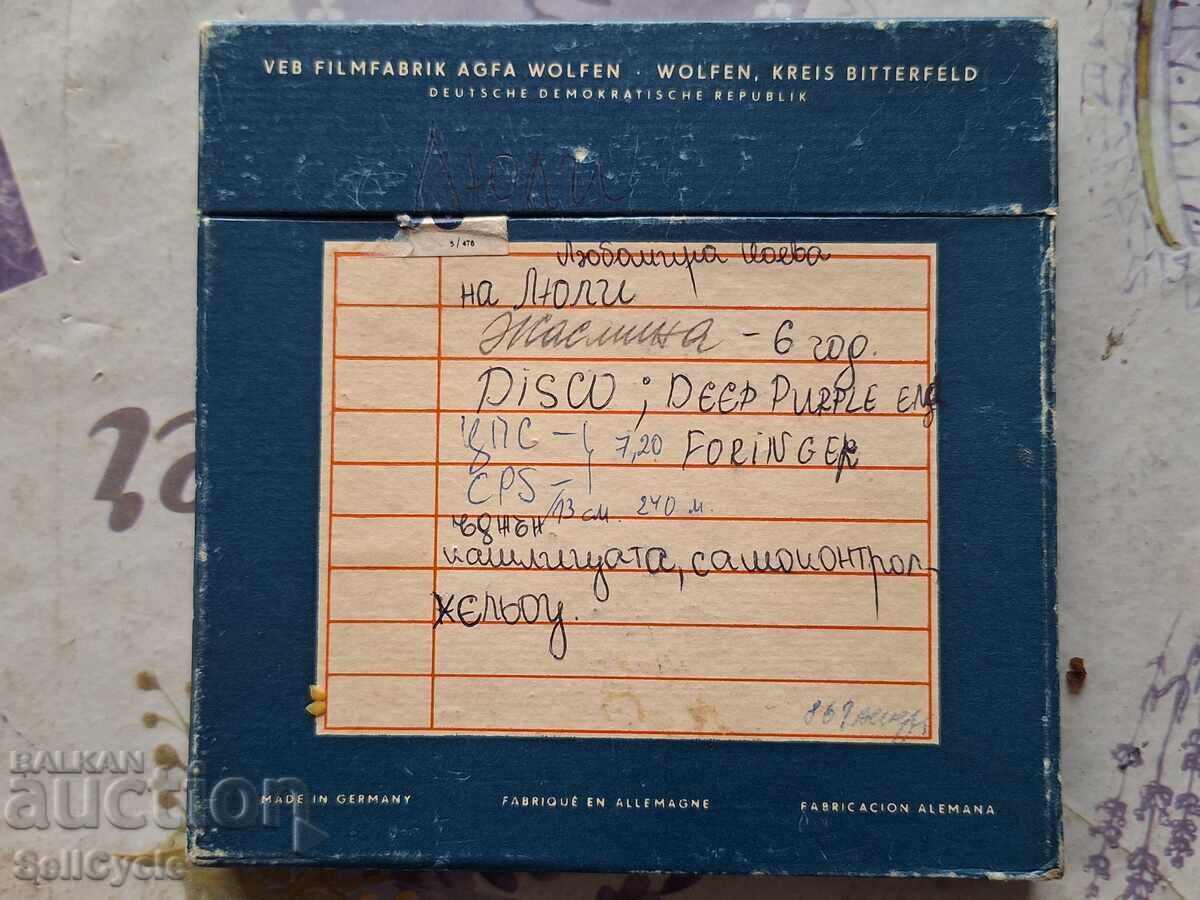 VEB FILMFABRIK AGFA WOLFEN · WOLFEN, KREIS BITTERFELD
DEUTSCHE DEMOKRATISCHE REPUBLIK
Люли
5/476
Любомира
на Люли
Жасмина - 6 год.
DiSCO ; DEEP PURPLE
ЦПС - 7,20 FORINGER
CPS - 13 см. 240 м.
самоконтрол
MADE IN GERMANY
FABRIQUÉ EN ALLEMAGNE
FABRICACION ALEMANA
BALKAN
auction
SellCycle